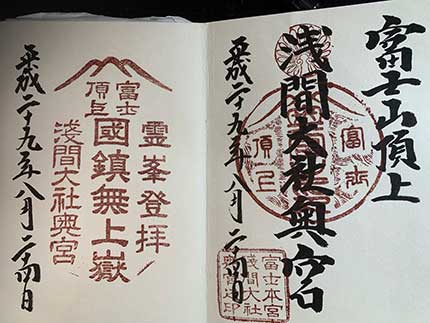 富士山頂上
浅間大社奥宮
富士
頂上
平成二十九年八月二十四日
富士本宮
浅間大社
霊峯登拝
富士頂上
國鎮無上嶽
淺間大社奥宮
平成二十九年八月二十四日